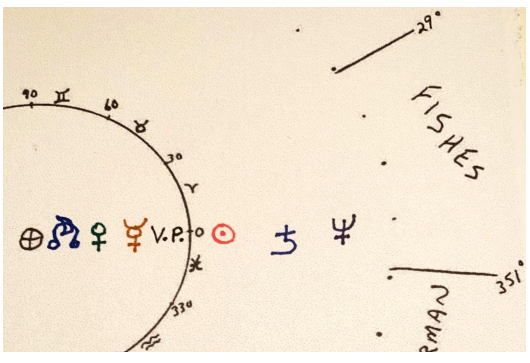 29°
90 ♊ 60
♉
FISHES
30
♈
⊕ ☊ ☽ ♀ ☿ V.P. 0 ☉ ♄ ♆
♓
351°
330
RMAN
♒